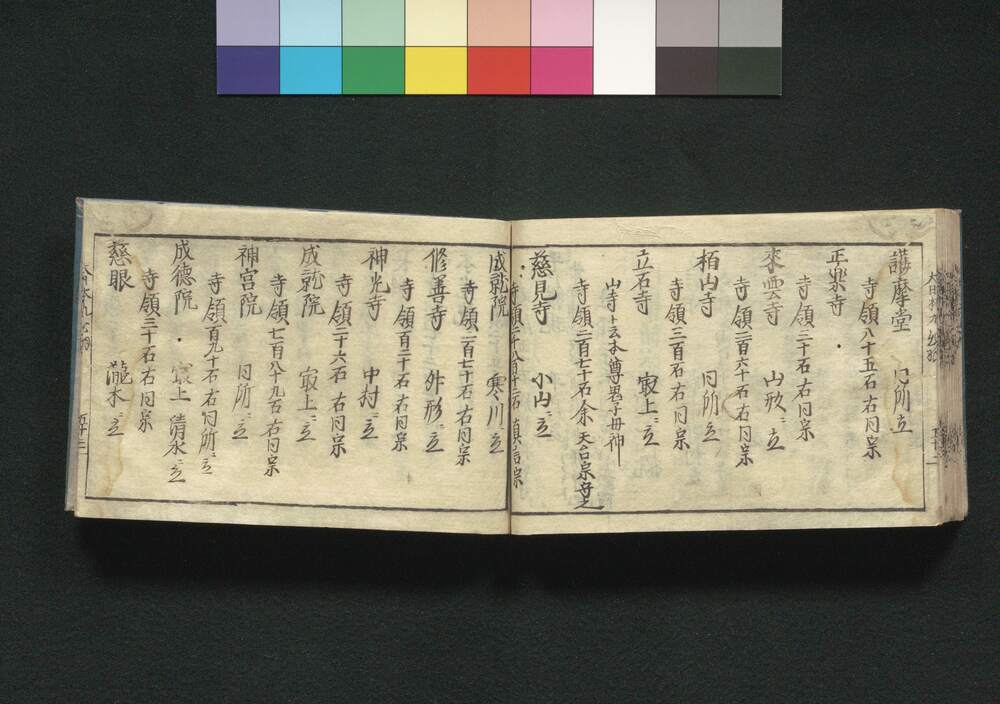 護摩堂 同所立
寺領八十五石右同宗
正楽寺
寺領三十石右同宗
来雲寺 山形ニ立
寺領二百六十石右同宗
柏山寺 同所ニ立
寺領三百石右同宗
立石寺 寂上ニ立
山寺ト云本尊男子毋神
寺領二百七十石余天台宗守之
慈見寺 小山ニ立
真言宗
成就院 寒川ニ立
寺領一百七十石右同宗
修善寺 外形ニ立
寺領百二十石右同宗
神光寺 中村ニ立
寺領二十六石右同宗
成就院 寂上ニ立
寺領七百八十九石右同宗
神宮院 同所ニ立
寺領百九十石右同所ニ立
成徳院 寂上清水ニ立
寺領三十石右同宗
慈眼 瀧本ニ立